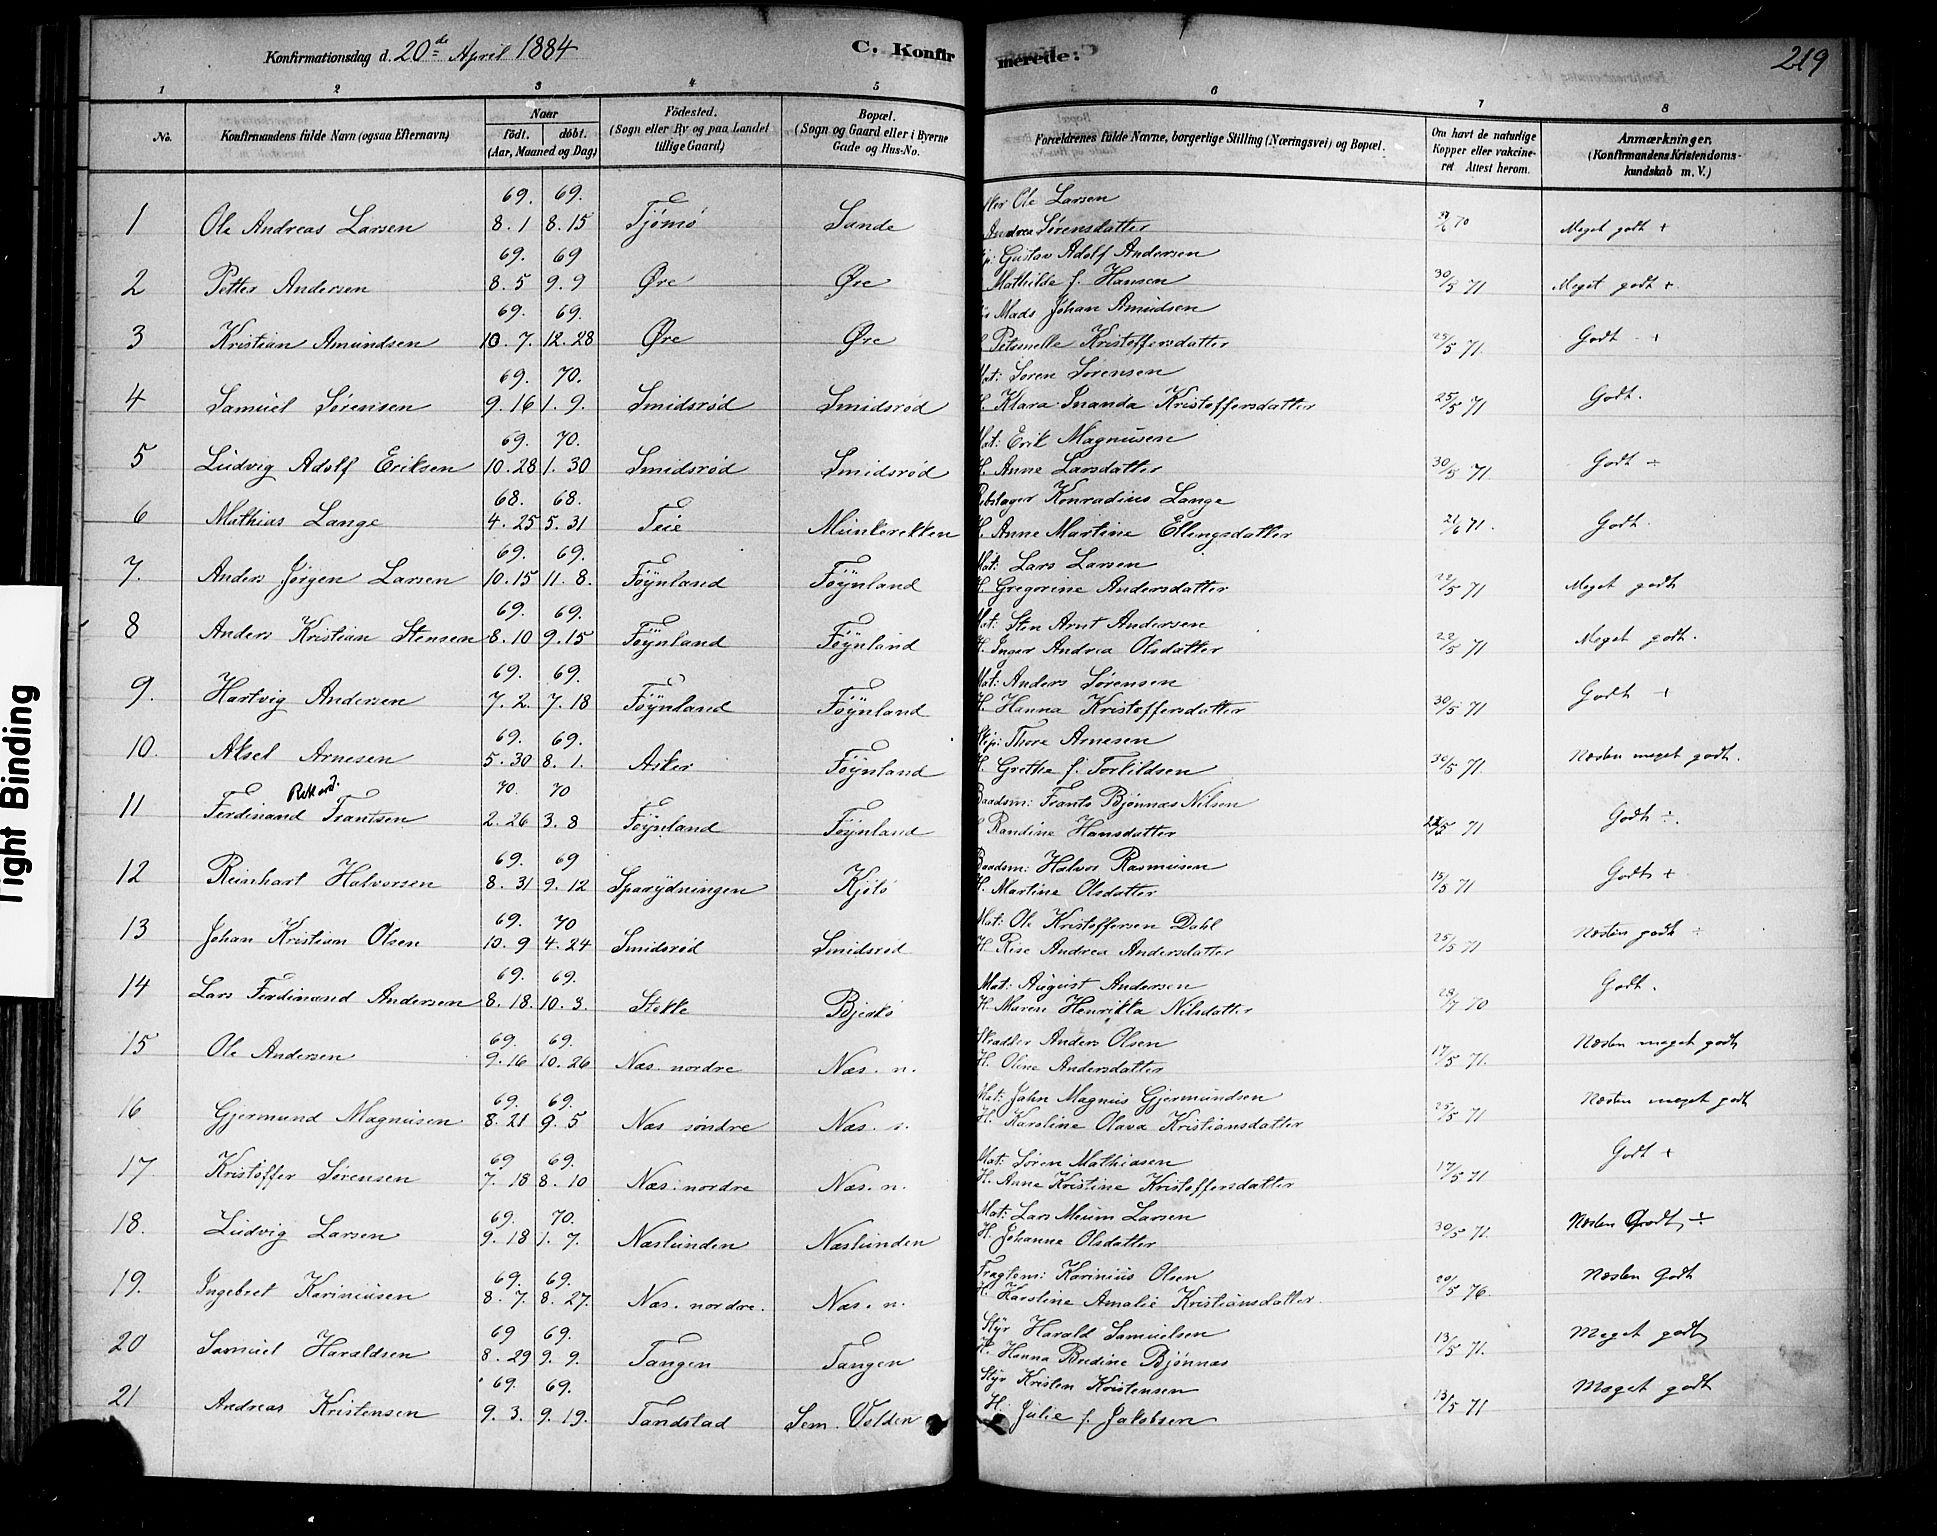 Konfirmationsdag d. 20de April 1884
C. Konfirmerede:
219
1 2 3 4 5 6 7 8
No.
Konfirmandens fulde Navn (ogsaa Efternavn)
Naar
født. døbt.
(Aar, Maaned og Dag)
Fødested.
(Sogn eller By og paa Landet
tillige Gaard)
Bopæl.
(Sogn og Gaard eller i Byerne
Gade og Hus-No.
Forældrenes fulde Navne, borgerlige Stilling (Næringsvei) og Bopæl.
Om havt de naturlige
Kopper eller vakcine-
ret Attest herom.
Anmærkninger.
(Konfirmandens Kristendoms-
kundskab m. V.)
69. 69. Ole Larsen
1 Ole Andreas Larsen 8. 1 8. 15 Tjømø Sande Andrea Sørensdatter 70 Meget godt +
69. 69 Gustav Adolf Andersen
2 Petter Andersen 8. 5 9. 9 Øre Øre Mathilde f. Hansen 30/5 71 Meget godt +
69. 69. Mads Johan Amudsen
3 Kristian Amundsen 10. 7. 12. 28 Øre Øre Petrnelle Kristoffersdatter 25/5 71. Godt +
69. 70. Mat: Søren Sørensen
4 Samuel Sørensen 9. 16 1. 9. Smidsrød Smidsrød H. Klara Inanda Kristoffersdatter 25/5 71 Godt.
69. 70. Mat: Erik Magnusen
5 Ludvig Adolf Eriksen 10. 28 1. 30 Smidsrød Smidsrød H. Anne Larsdatter 30/5 71. Godt ÷
68. 68. Rebslager Konradius Lange
6 Mathias Lange 4. 25 5. 31 Teie Munkerekken H. Anne Martine Ellingsdatter 21/6 71. Godt.
69. 69. Mat: Lars Larsen
7. Anders Jørgen Larsen 10. 15 11. 8. Føynland Føynland H. Gregorine Andersdatter 22/5 71 Meget godt
69. 69. Mat: Sten Arnt Andersen
8 Anders Kristian Stensen 8. 10 9. 15 Føynland Føynland H. Inger Andrea Olsdatter 22/5 71 Meget godt.
69. 69. Mat: Anders Sørensen
9. Hartvig Andersen 7. 2. 7. 18 Føynland Føynland H. Hanna Kristoffersdatter 30/5 71 Godt +
69. 69. Skip: Thore Arnesen
10. Aksel Arnesen 5. 30 8. 1. Asker Føynland H. Grethe f. Torkildsen 30/5 71. Næsten meget godt.
Rikard. 70. 70 Baadsm: Frants Bjønnæs Nilsen
11 Ferdinand Frantsen 2. 26 3. 8 Føynland Føynland H. Randine Hansdatter 22/5 71 Godt ÷.
69. 69 Baadsm: Halvor Rasmusen
12 Reinhart Halvorsen 8. 31 9. 12 Sparydningen Kjøtø H. Martine Olsdatter 15/5 71 Godt +
69. 70 Mat: Ole Kristoffersen Dahl
13 Johan Kristian Olsen 10. 9 4. 24 Smidsrød Smidsrød H. Rise Andrea Andersdatter 25/5 71 Næsten godt ÷
69. 69. Mat: August Andersen
14 Lars Ferdinand Andersen 8. 18. 10. 3. Stokke Bjerkø H. Maren Henrikka Nilsdatter 28/7 70 Godt.
69. 69. Skrædder Anders Olsen
15 Ole Andersen 9. 16 10. 26 Næs. nordre Næs. n. H. Oline Andersdatter 17/5 71. Næsten meget godt
69. 69. Mat: Jahn Magnus Gjermundsen
16 Gjermund Magnusen 8. 21 9. 5 Næs søndre Næs. s. H. Karoline Olava Kristiansdatter 25/5 71 Næsten meget godt
69 69. Mat: Søren Mathiasen
17. Kristoffer Sørensen 7. 18 8. 10 Næs. nordre Næs. n. H. Anne Kristine Kristoffersdatter 17/5 71 Godt +
69. 70. Mat: Lars Meum Larsen
18. Ludvig Larsen 9. 18 1. 7. Næslunden Næslunden H. Johanne Olsdatter 30/5 71. Næsten Godt ÷
69. 69. Fragtem: Karinius Olsen
19. Ingebret Kariniusen 8. 7. 8. 27. Næs. nordre. Næs. n. H. Karoline Amalie Kristiansdatter. 20/5 76. Næsten Godt
69 69. Styr Harald Samuelsen
20 Samuel Haraldsen 8. 29 9. 9. Tangen Tangen H. Hanna Bredine Bjønnæs 13/5 71. Meget godt
69. 69. Styr Kristen Kristensen
21 Andreas Kristensen 9. 3. 9. 19. Tandstad Sem. Volden H. Julie f. Jakobsen 13/5 71 Meget godt
Tight Binding